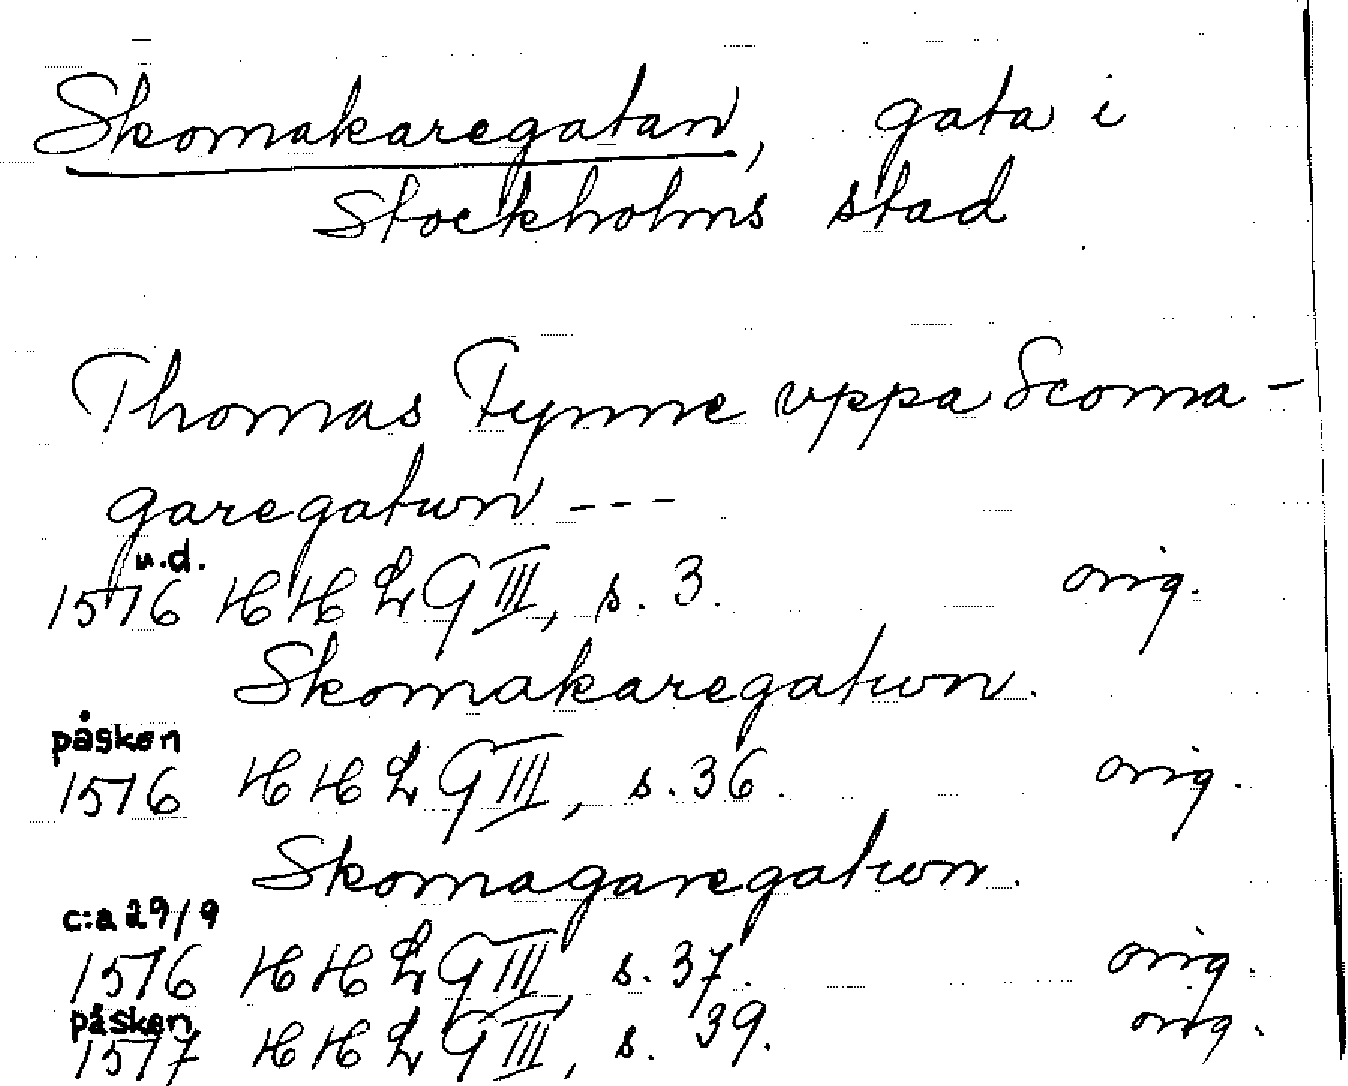 Skomakaregatan, gata i
Stockholms stad
Thomas Fynne uppa Scoma-
garegatwn ---
u.d.
1576 HHLG III, s. 3. orig.
Skomakaregatwn.
påsken
1576 HHLG III, s. 36. orig.
Skomagaregatwn.
c:a 29/9
1576 HHLG III, s. 37. orig.
påsken
1577 HHLG III, s. 39. orig.